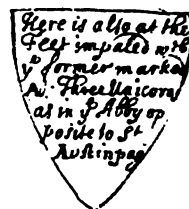 Here is also at the
Feet impaled wth
ye former marked
Av. Three Unicorns
as in ye Abby op
posite to St
Austin pag